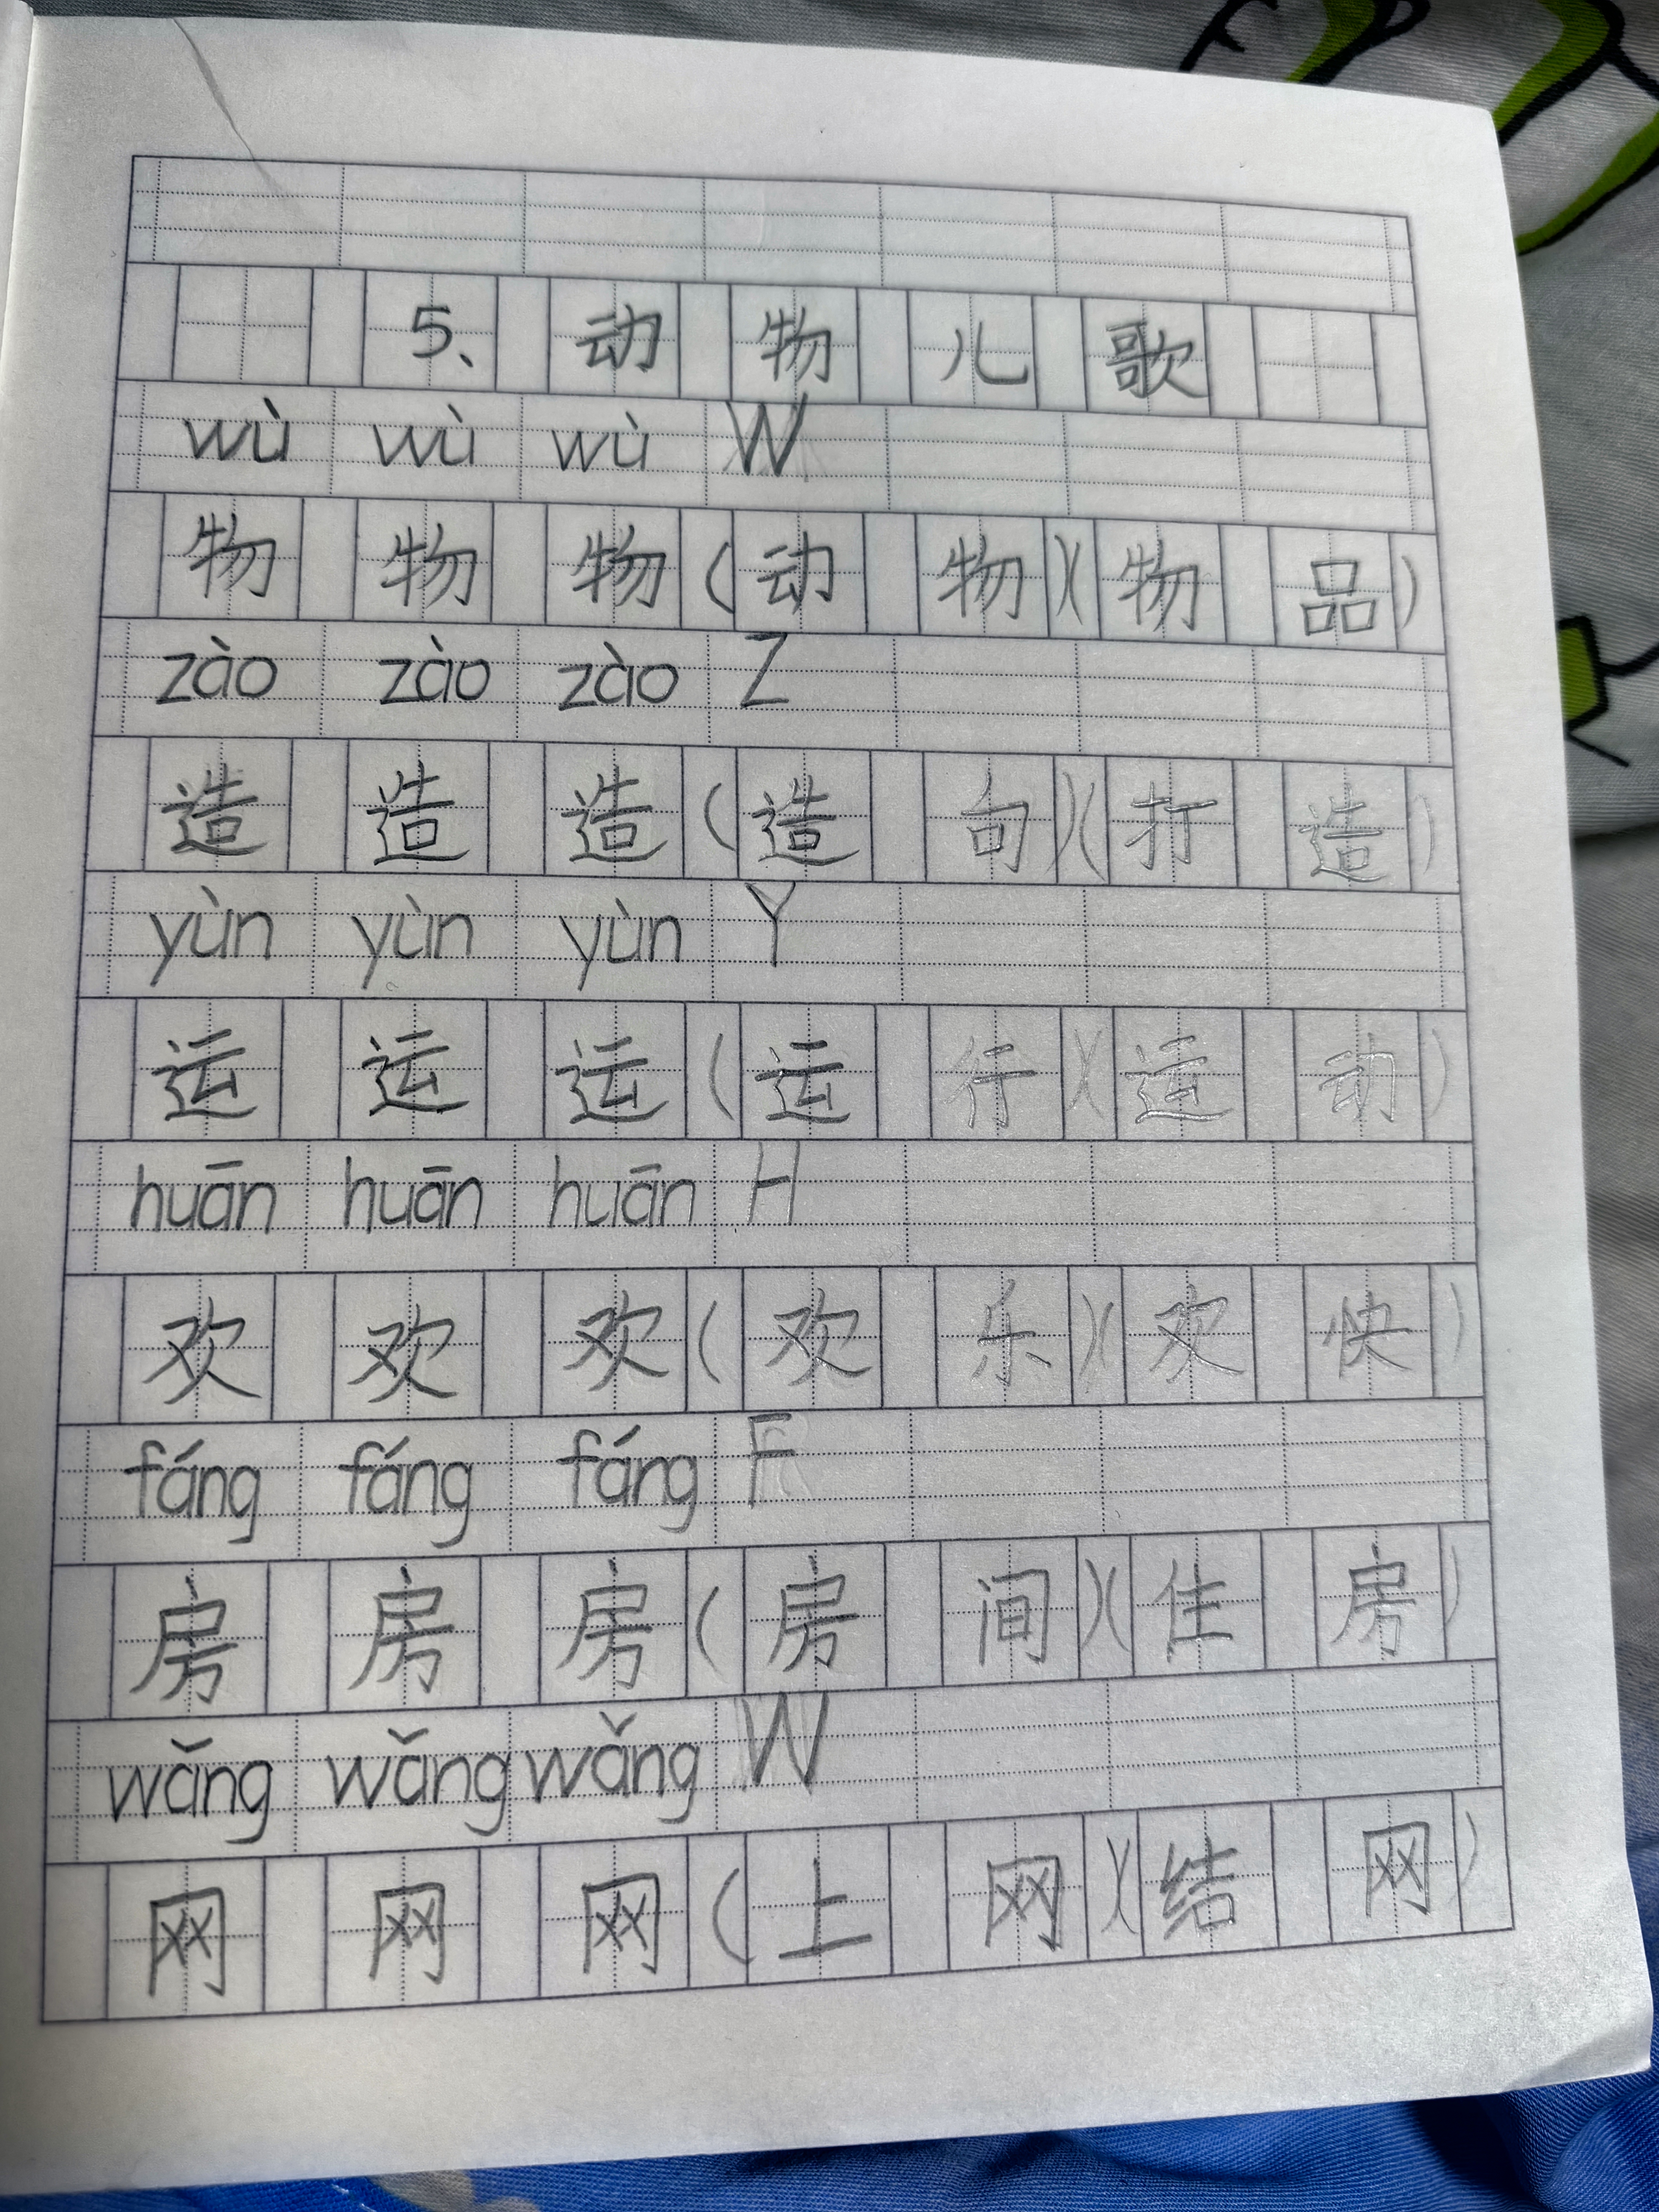 5、动物儿歌
wù wù wù W
物 物 物(动物)(物品)
zào zào zào Z
造 造 造(造句)(打造)
yùn yùn yùn Y
运 运 运(运行)(运动)
huān huān huān H
欢 欢 欢(欢乐)(欢快)
fáng fáng fáng F
房 房 房(房间)(住房)
wǎng wǎng wǎng W
网 网 网(上网)(结网)